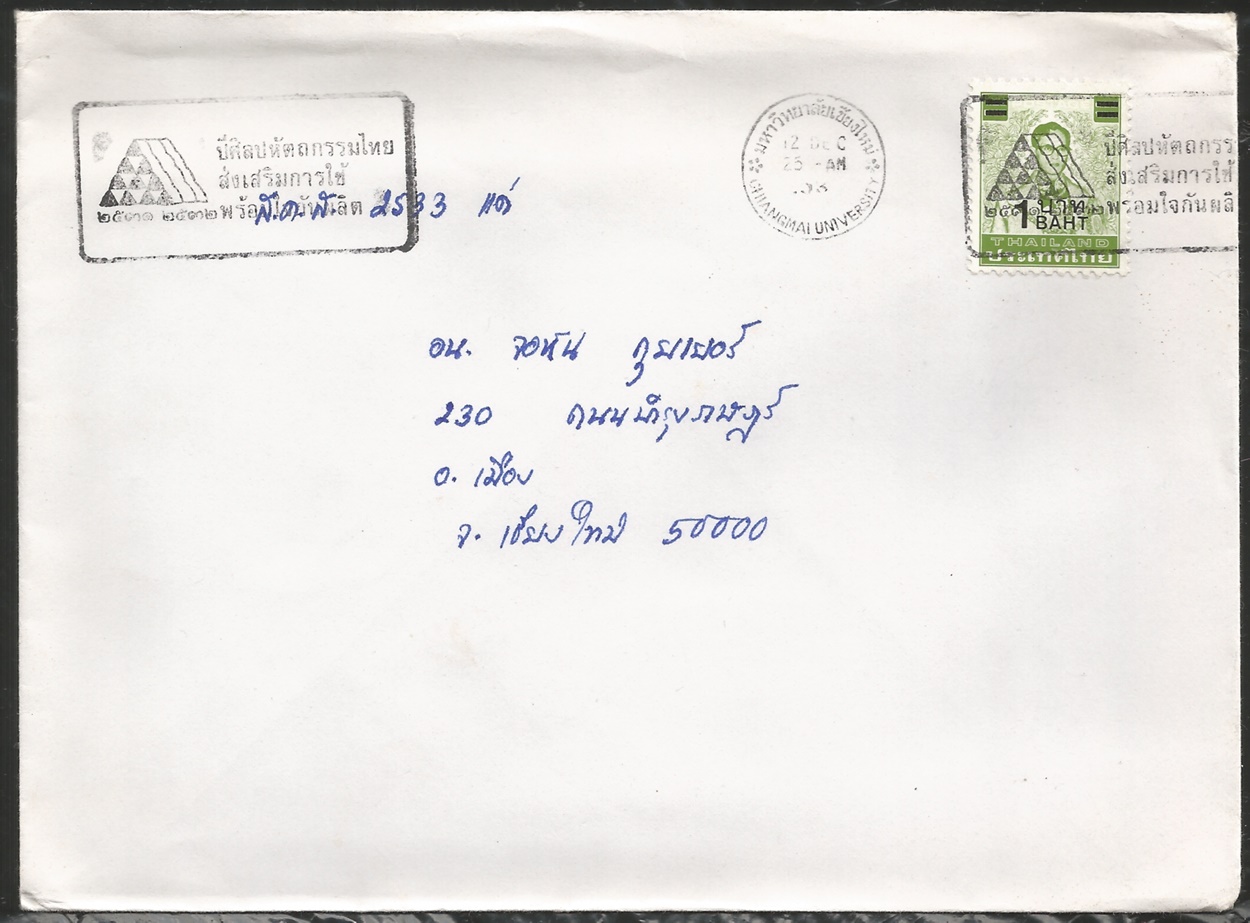 ปีศิลปหัตถกรรมไทย
ส่งเสริมการใช้
๒๕๓๑ ๒๕๓๒ พร้อมใจกันผลิต
ส.ค.ส. 2533 แด่
มหาวิทยาลัยเชียงใหม่
12 DEC
25 -AM
CHIANGMAI UNIVERSITY
ปีศิลปหัตถกรร
ส่งเสริมการใช้
พร้อมใจกันผลิ
1 บาท
BAHT
THAILAND
ประเทศไทย
อน. จอห์น
230 ถนนบำรุงราษฎร์
อ. เมือง
จ. เชียงใหม่ 50000